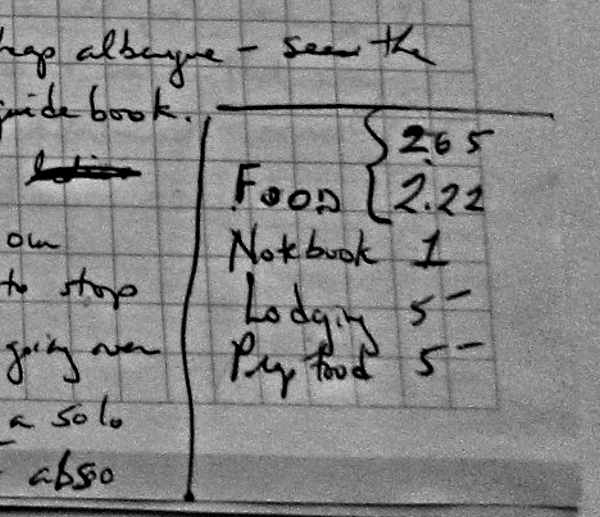 albergue - seen the
guide book.
own
to stop
going over
a solo
abso
2.65
Food 2.22
Notebook 1
Lodging 5-
food 5-